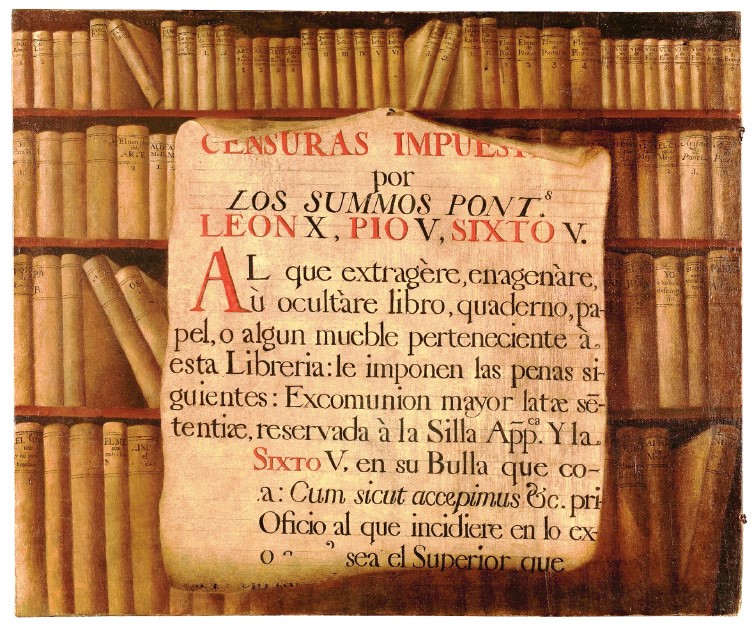 CENSURAS IMPUEST
por
LOS SUMMOS PONT.s
LEON X, PIO V, SIXTO V.
AL que extragère, enagenàre,
ù ocultàre libro, quaderno, pa-
pel, o algun mueble perteneciente à
esta Libreria: le imponen las penas si-
guientes: Excomunion mayor latæ sē-
tentiæ, reservada à la Silla App̄.ca Y la
SIXTO V. en su Bulla que co-
a: Cum sicut accepimus &c. pri
Oficio al que incidiere en lo ex-
sea el Superior que